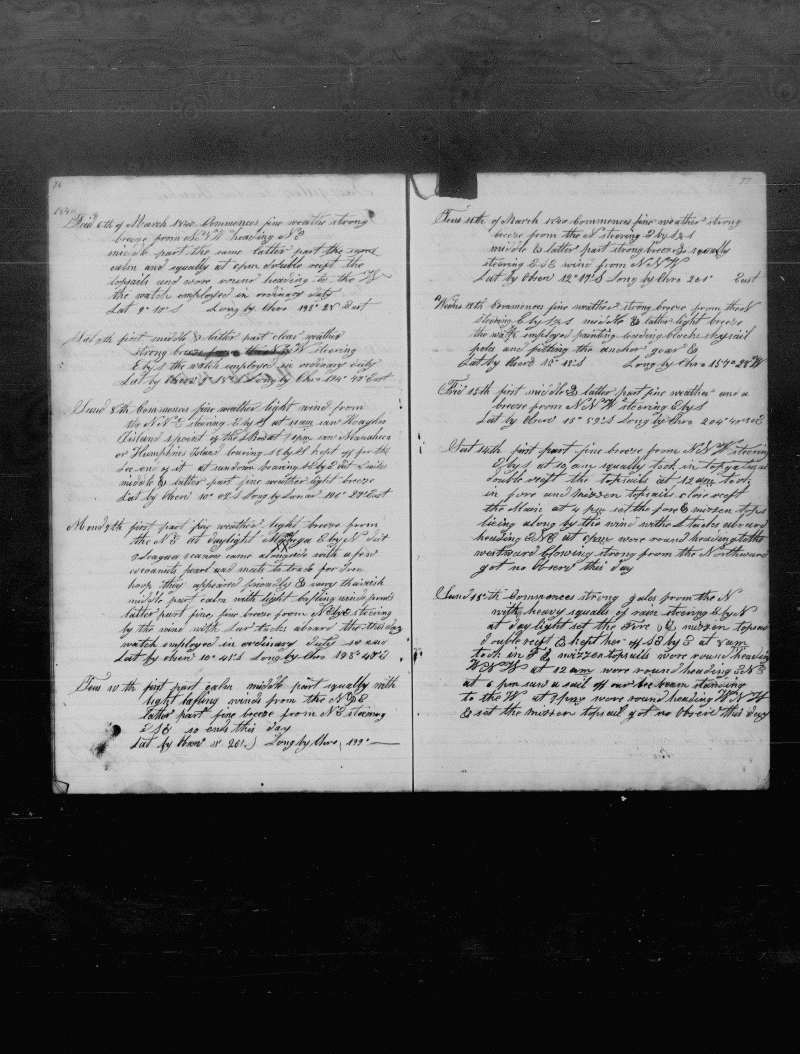 76
1840
Frid 6th of March 1840 Commences fine weathe strong
breeze from N N W heading N E
middle part the same latter part the same
calm and squally at 6 pm double reeft the
topsails and wore round heading to the W
the watch employed in ordinary duty
Lat 9° 10' S Long by Chro 193° 28' East
Sat 7th first middle & latter part clear weather
strong breeze from N W steering
E by S the watch employed in ordinary duty
Lat by Obser 9° 18' S Long by Chro East
Sund 8th Commences fine weather light wind from
the N N E steering E by S at 11 am saw
Island 3 point of the at saw
or Humphries Island bearing S by E kept off for the
Lee end of it at sundown bearing S by E Dist miles
middle & latter part fine weather light breeze
Lat by Obser 10° 02' S Long by Lunar East
Mond 9th first part fine weather light breeze from
the N E at daylight E by N Dist
Leagues canoes came alongside with a few
cocoanuts pearl and to trade for Iron
hoop they appeared friendly & very thievish
middle part calm with light bafling winds from
latter part fine, fine breeze from N E by E steering
by the wind with Lar tacks aboard the
watch employed in ordinary duty so ends
Lat by obser 10° 41' S Long by Chro 198° E
Tues 10th first part calm middle part squally with
light bafling winds from the N & E
latter part fine breeze from N E steering
S E so ends this day
Lat by Obser 11° 20' S Long by Chro 199°
77
Tues of March 1840 Commences fine weather strong
breeze from the N steering E by S ½ S
middle & latter part strong breeze & squally
steering E S E wind from N N W
Lat by Obser 12° 17' S Long by Chro 201° East
Weds Commences fine weather strong breeze from the N
steering E by S ½ S middle & latter light breeze
the watch employed painting blocks skysail
poles and fitting the anchor gear &
Lat by Obser 13° 18' S Long by Chro 157° 28' W
Frid 13th first middle & latter part fine weather and a
breeze from N N W steering E by S
Lat by Obser 13° 52' S Long by Chro 204° 40' E
Sat 14th first part fine breeze from N N W steering
E by S at 10 am squally took in topgalsails
double reeft the topsails at 12 am took
in fore and mizzen topsails close reeft
the Main at 4 pm set the fore & mizzen tops
lieing along by the wind with S tacks aboard
heading E N E at 6 pm wore round heading to the
westward blowing strong from the Northward
got no Obserd this day
Sund 15th Commences strong gales from the N
with heavy squalls of rain steering E by N
at daylight set the Fore & mizzen topsail
double reeft & kept her off S E by E at 8 am
took in F & mizzen topsails wore round heading
W N W at 12 am wore round heading E N E
at 6 pm saw a sail off our lee beam standing
to the W at 7 pm wore round heading W N W
& set the mizzen topsail got no Obser this day